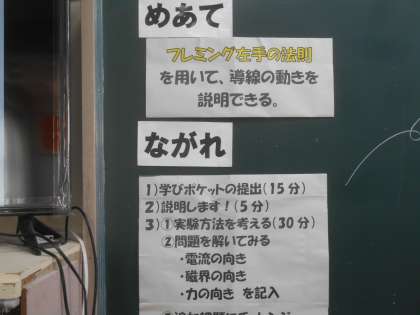 めあて
フレミング左手の法則
を用いて、導線の動きを
説明できる。
ながれ
1)学びポケットの提出(15分)
2)説明します!(5分)
3)①実験方法を考える(30分)
②問題を解いてみる
・電流の向き
・磁界の向き
・力の向き を記入